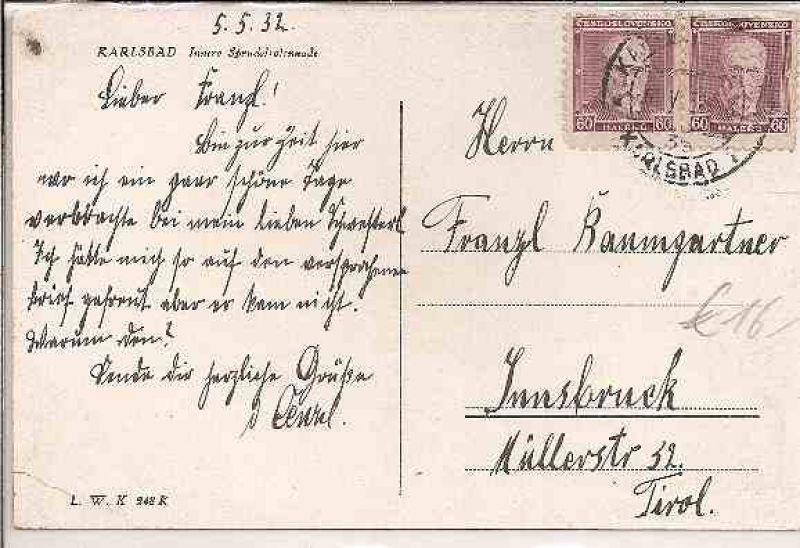 5.5.32.
KARLSBAD Innere Sprudelkolonnade
Lieber Franzl!
Bin zur Zeit hier
wo ich ein paar schöne Tage
verbrachte bei mein lieben Schwesterl
Ich hätte mich so auf den versprochenen
Brief gefreut aber er kam nicht.
Warum den?
Sende dir herzliche Grüße
L. W. K 248 K
ČESKOSLOVENSKO
60 HALÉŘŮ 60
ČESKOSLOVENSKO
60 HALÉŘŮ 60
KARLSBAD
Herrn
Franzl Baumgartner
k 16
Innsbruck
Müllerstr 32.
Tirol.